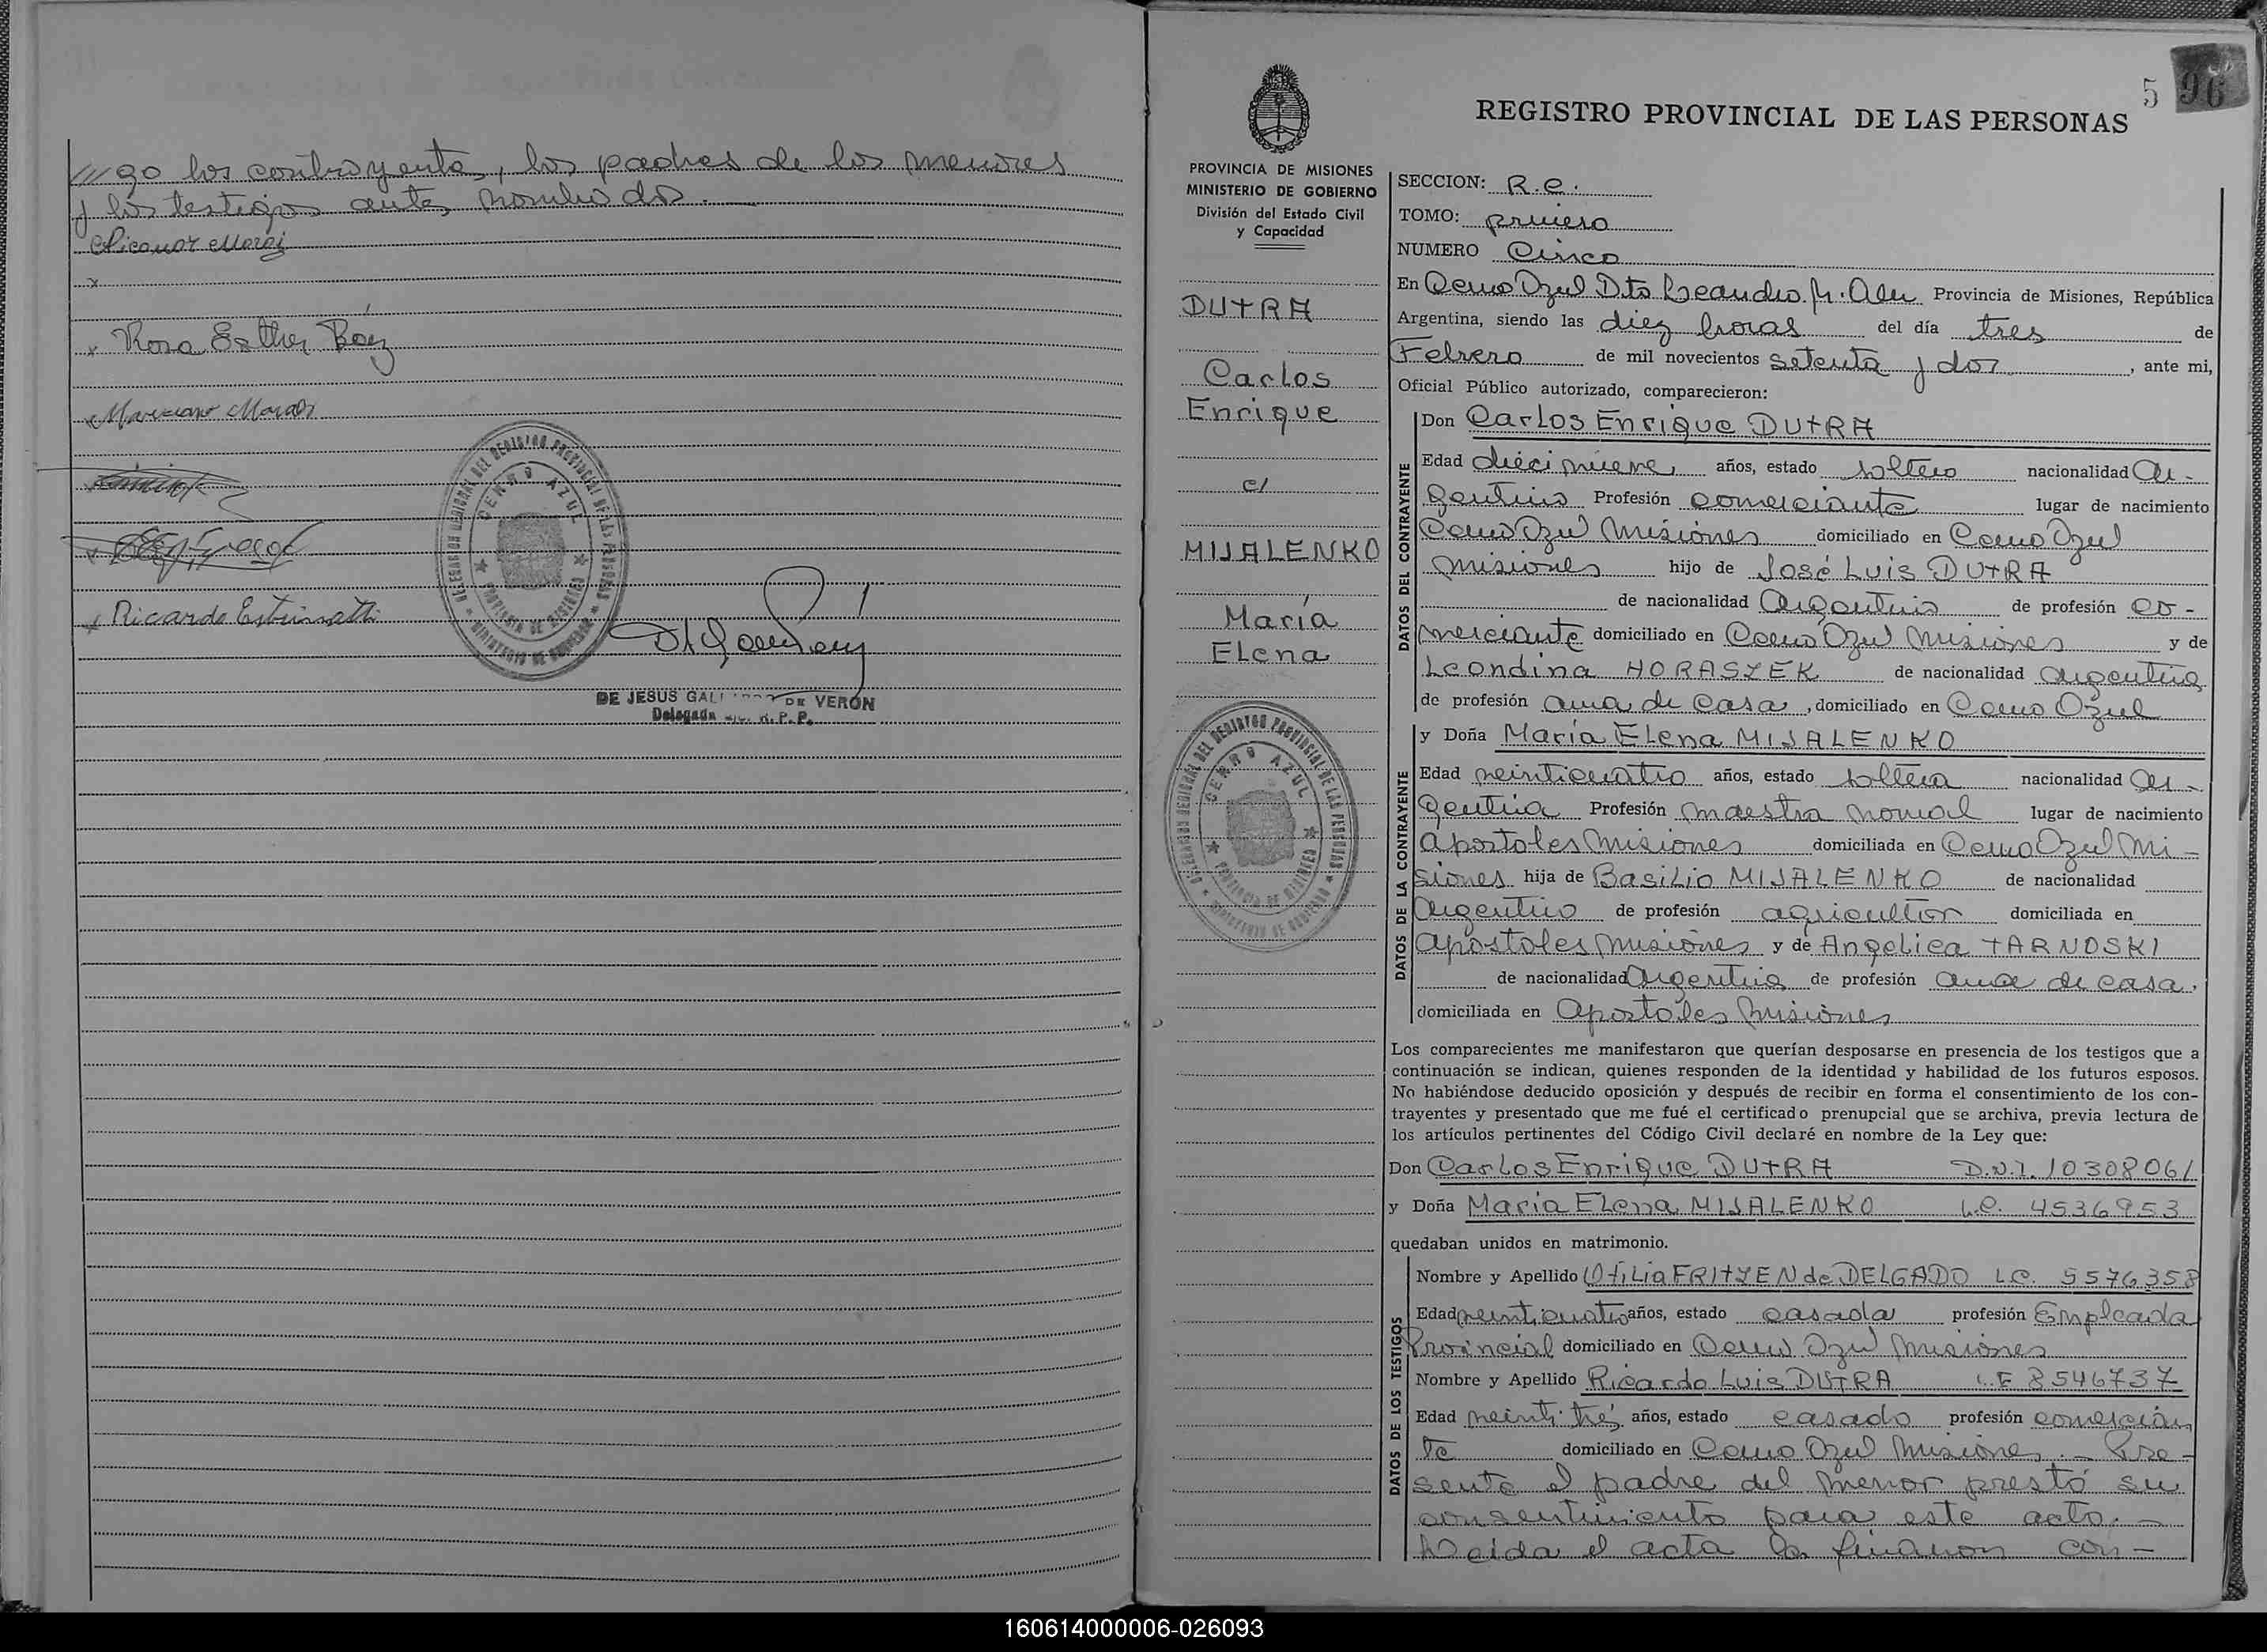 ///go los contrayentes, los padres de los menores
y los testigos antes nombrados.—
Nicanor Moraz
x
x Rosa Esther Báez
x
x
x Ricardo
DELEGACION REGIONAL DEL REGISTRO PROVINCIAL DE LAS PERSONAS
CERRO AZUL
PROVINCIA DE MISIONES
MINISTERIO DE GOBIERNO
DE JESUS DE VERÓN
Delegada R. P. P.
5 96
REGISTRO PROVINCIAL DE LAS PERSONAS
PROVINCIA DE MISIONES
MINISTERIO DE GOBIERNO
División del Estado Civil
y Capacidad
DUTRA
Carlos
Enrique
c/
MIJALENKO
María
Elena
DELEGACION REGIONAL DEL REGISTRO PROVINCIAL DE LAS PERSONAS
CERRO AZUL
PROVINCIA DE MISIONES
MINISTERIO DE GOBIERNO
SECCION: R.C.
TOMO: primero
NUMERO Cinco
En Cerro Azul Dto Leandro N. Alem Provincia de Misiones, República
Argentina, siendo las diez horas del día tres de
Febrero de mil novecientos setenta y dos, ante mi,
Oficial Público autorizado, comparecieron:
DATOS DEL CONTRAYENTE
Don Carlos Enrique DUTRA
Edad diecinueve años, estado soltero nacionalidad Ar-
gentino Profesión comerciante lugar de nacimiento
Cerro Azul Misiones domiciliado en Cerro Azul
Misiones hijo de José Luis DUTRA
de nacionalidad Argentino de profesión co-
merciante domiciliado en Cerro Azul Misiones y de
Leondina HORASZEK de nacionalidad argentina
de profesión ama de casa, domiciliado en Cerro Azul
DATOS DE LA CONTRAYENTE
y Doña María Elena MIJALENKO
Edad veinticuatro años, estado soltera nacionalidad Ar-
gentina Profesión maestra normal lugar de nacimiento
Apostoles Misiones domiciliada en Cerro Azul Mi-
siones hija de Basilio MIJALENKO de nacionalidad
Argentino de profesión agricultor domiciliada en
Apostoles Misiones y de Angelica TARNOSKI
de nacionalidad Argentina de profesión ama de casa,
domiciliada en Apostoles Misiones
Los comparecientes me manifestaron que querían desposarse en presencia de los testigos que a
continuación se indican, quienes responden de la identidad y habilidad de los futuros esposos.
No habiéndose deducido oposición y después de recibir en forma el consentimiento de los con-
trayentes y presentado que me fué el certificado prenupcial que se archiva, previa lectura de
los artículos pertinentes del Código Civil declaré en nombre de la Ley que:
Don Carlos Enrique DUTRA D.N.I. 10308061
y Doña María Elena MIJALENKO L.C. 4536953
quedaban unidos en matrimonio.
DATOS DE LOS TESTIGOS
Nombre y Apellido Otilia FRITZEN de DELGADO L.C. 5576358
Edad veinticuatro años, estado casada profesión Empleada
Provincial domiciliado en Cerro Azul Misiones
Nombre y Apellido Ricardo Luis DUTRA L.E 8546737
Edad veinti tré años, estado casado profesión comercian
te domiciliado en Cerro Azul Misiones.- Pre-
sente el padre del menor prestó su
consentimiento para este acto.-
Leida el acta la firmaron con-
160614000006-026093